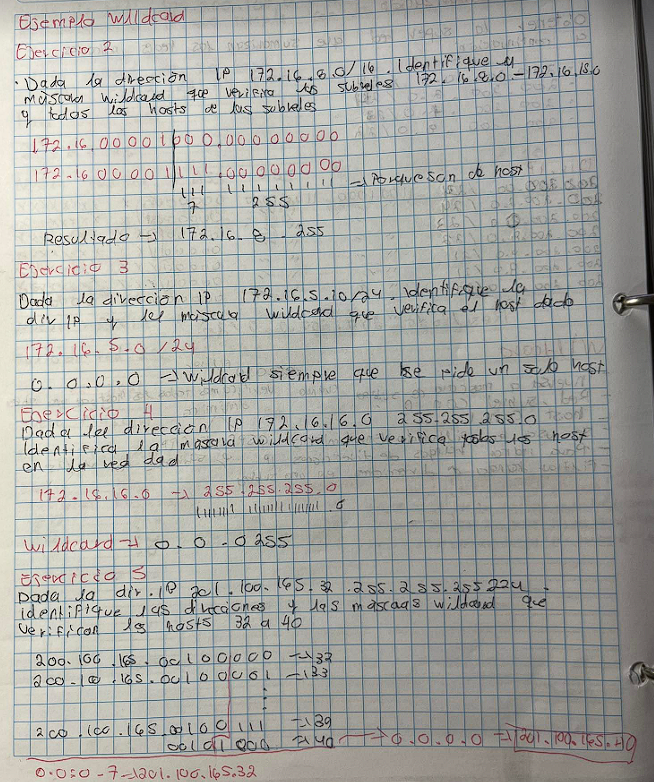 Ejemplo Wildcard
Ejercicio 2
· Dada la dirección IP 172.16.8.0/16. Identifique y
máscara wildcard que verifica los subredes 172.16.8.0-172.16.15.0
y todos los hosts de las subredes
172.16.00001000.00000000
172.16.00001111.00000000
111 11111111 → Porque son de host
7 255
Resultado → 172.16.8.255
Ejercicio 3
Dada la dirección IP 172.16.5.10/24. identifique la
dir IP y la máscara wildcard que verifica el host dado
172.16.5.0/24
0.0.0.0 → Wildcard siempre que se pide un solo host
Ejercicio 4
Dada la dirección IP 172.16.16.0 255.255.255.0
Identifica la máscara wildcard que verifica todos los host
en la red dad
172.16.16.0 → 255.255.255.0
Wildcard → 0.0.0255
Ejercicio 5
Dada la dir. IP 201.100.165.32 255.255.255.224.
identifique las direcciones y las máscaras wildcard que
verifican los hosts 32 a 40
200.100.165.00100000 → 32
200.10.165.00100001 → 33
200.100.165.00100111 → 39
00101000 → 40 → 0.0.0.0 → 201.100.165.40
0.0.0-7 → 201.100.165.32